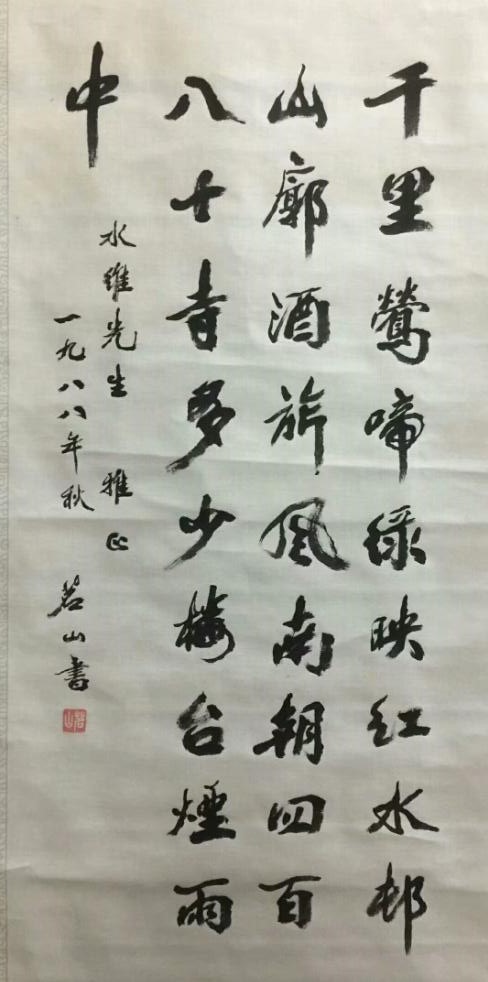 千里鶯啼綠映紅水邨
山廓酒旂風南朝四百
八十寺多少樓台煙雨
中
水維先生 雅正
一九八八年秋 茗山書
茗山